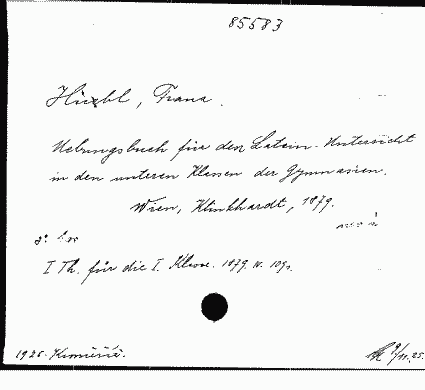 85583
Franz
Uebungsbuch für den Latein-Unterricht
in den unteren Klassen der Gymnasien.
Wien, Klinkhardt, 1879.
8°
I Th. für die I. Klasse. 1879. IV. 109 s.
1925.